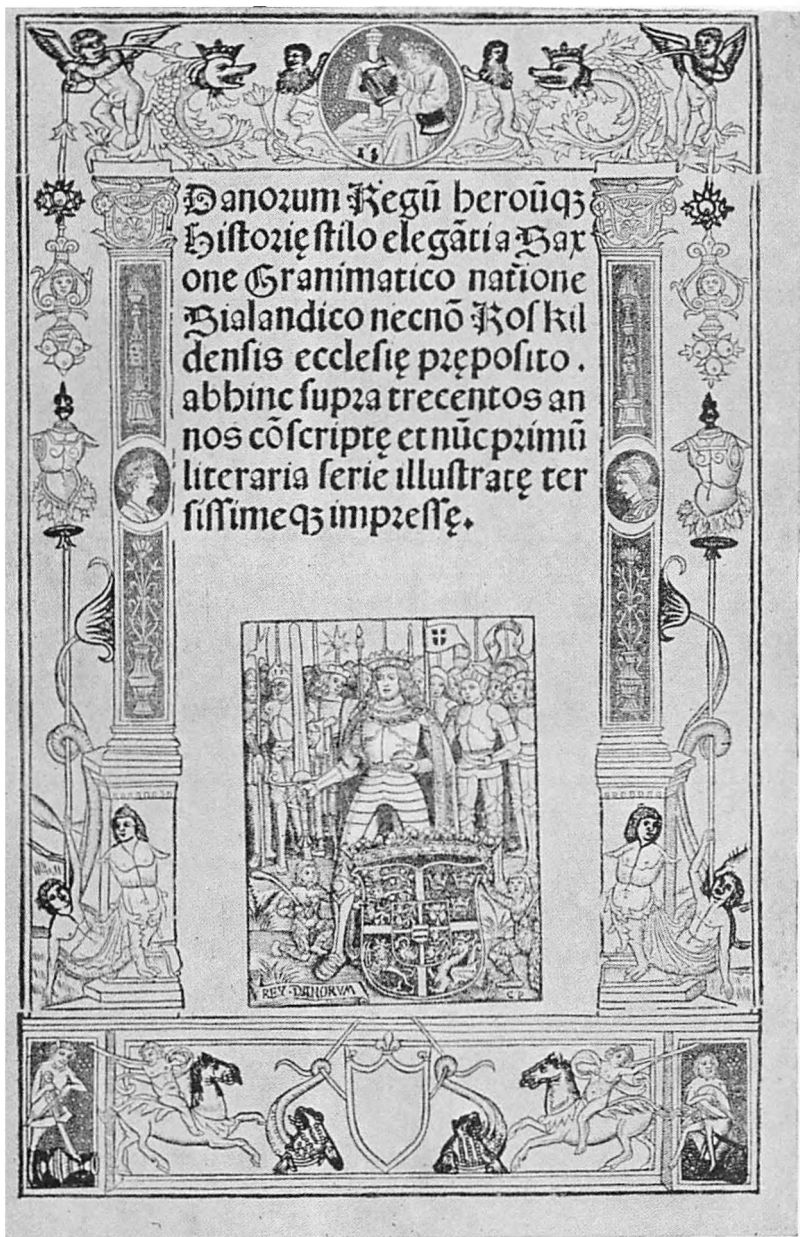 Danorum Regū heroūqꝫ
Historię stilo elegāti a Sax
one Grammatico natione
Sialandico necnō Roskil
densis ecclesię pręposito.
abhinc supra trecentos an
nos cōscriptę et nūc primū
literaria serie illustratę ter
sissimeqꝫ impressę.
REX·DANORVM